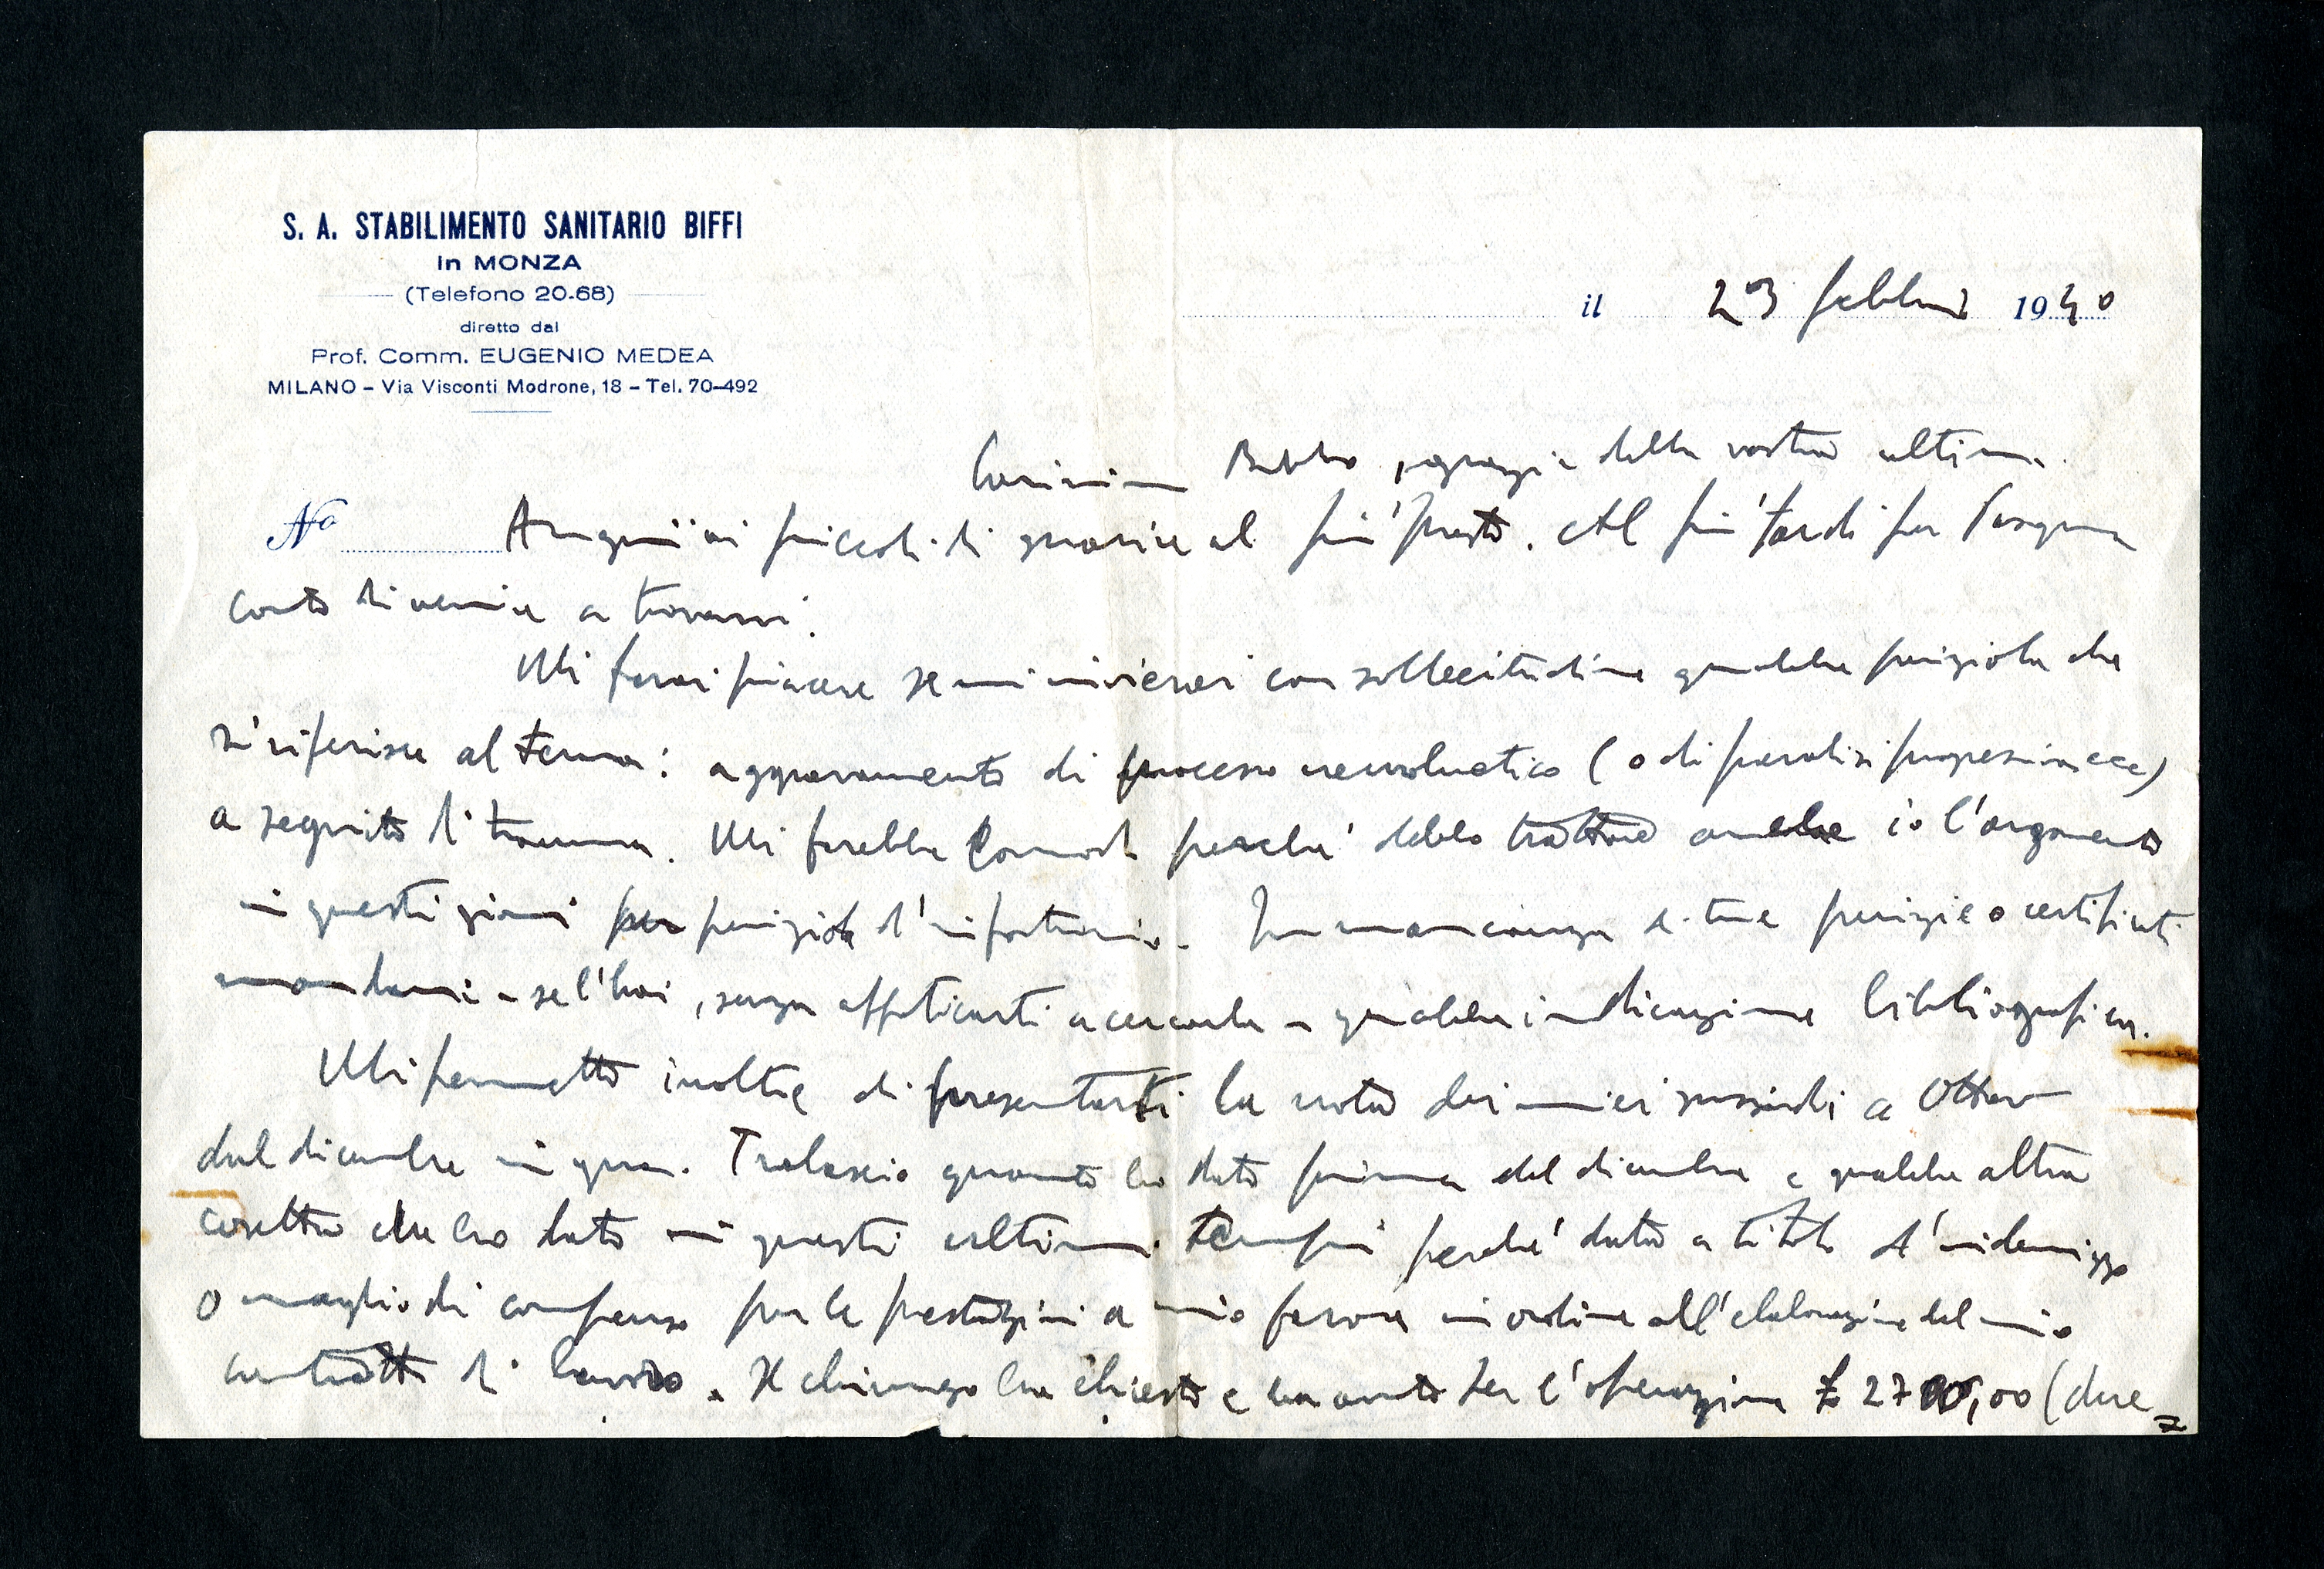 S. A. STABILIMENTO SANITARIO BIFFI
in MONZA
(Telefono 20-68)
diretto dal
Prof. Comm. EUGENIO MEDEA
MILANO – Via Visconti Modrone, 18 – Tel. 70-492
il 23 febbraio 1940
Carissimo Babbo, grazie della vostra ultima.
No
Auguri ai piccoli di guarire al più presto. Al più tardi per Pasqua
conto di venire a trovarvi.
Mi farai piacere se mi invierai con sollecitudine qualche periziola che
si riferisce al tema: aggravamento di processo neuroluetico (o di paralisi progressiva ecc)
a seguito di trauma. Mi farebbe comodo perché debbo trattare anche io l'argomento
in questi giorni per periziola d'infortunio. In mancanza di tue perizie o certificati
mandami – se l'hai, senza affaticarti a cercarla – qualche indicazione bibliografica.
Mi permetto inoltre di presentarti la nota dei miei sussidi a
dal dicembre in qua. Tralascio quanto ho dato prima del dicembre e qualche altra
cosetta che ho dato in questi ultimi tempi perché data a titolo d'indennizzo
o meglio di compenso per le prestazioni a mio favore in ordine all'elaborazione del mio
contratto di lavoro. Il chirurgo ha chiesto e ha avuto per l'operazione £ 2700,00 (due=